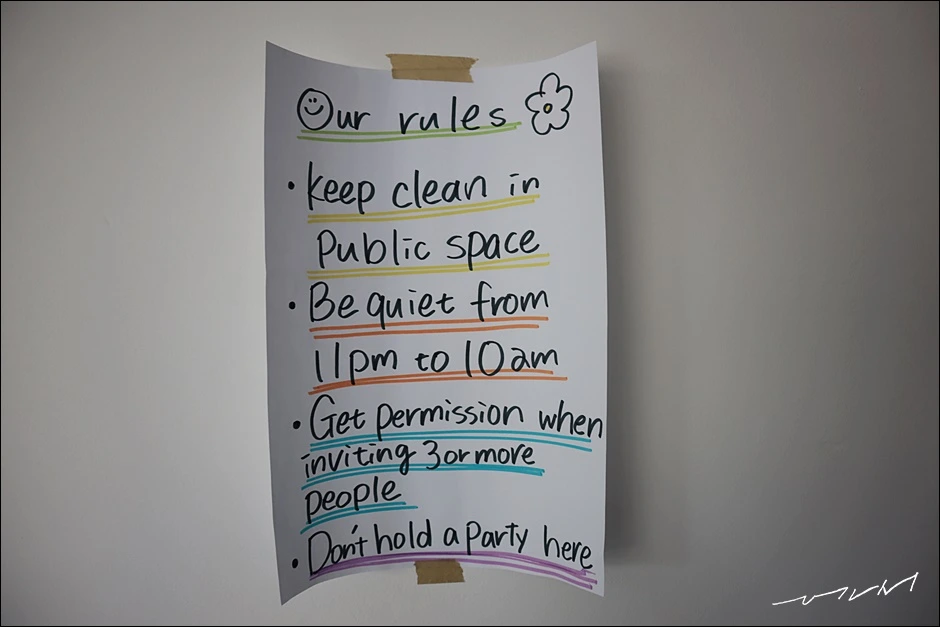 Our rules
• keep clean in
public space
• Be quiet from
11pm to 10am
• Get permission when
inviting 3 or more
people
• Don't hold a party here